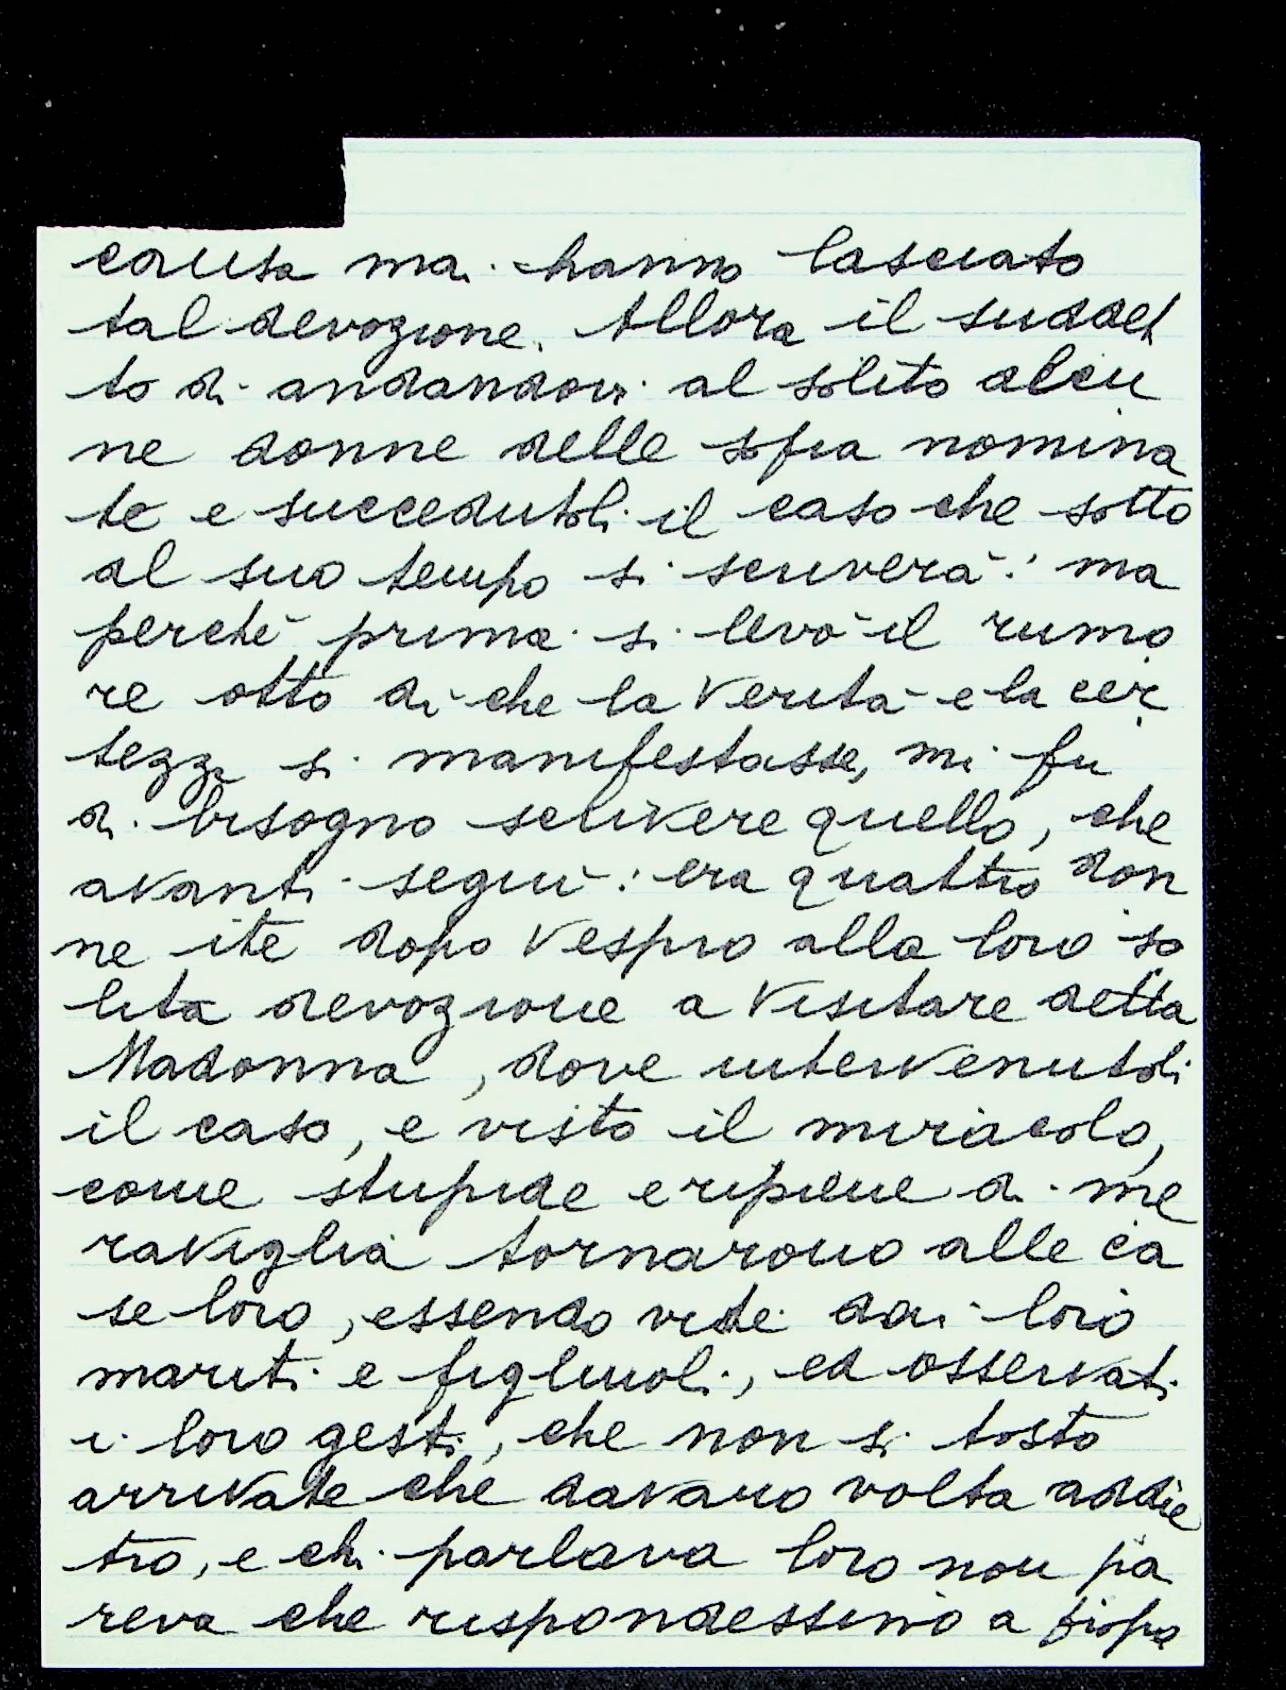 causa mai hanno lasciato
tal devozione. Allora il suddet
to di andandovi al solito alcu
ne donne delle sopra nomina
te e succedutoli il caso che sotto
al suo tempo si scriverà: ma
perché prima si levò il rumo
re otto dì che la Verità e la cer
tezza si manifestasse, mi fu
di bisogno scrivere quello, che
avanti seguì: era quattro don
ne ite dopo Vespro alla loro so
lita devozione a Visitare detta
Madonna, dove intervenutoli
il caso, e visto il miracolo,
come stupide e ripiene di me
raviglia tornarono alle ca
se loro, essendo viste dai loro
mariti e figliuoli, ed osservati
i loro gesti, che non sì tosto
arrivate che davano volta addie
tro, e chi parlava loro non pa
reva che rispondessino a propo